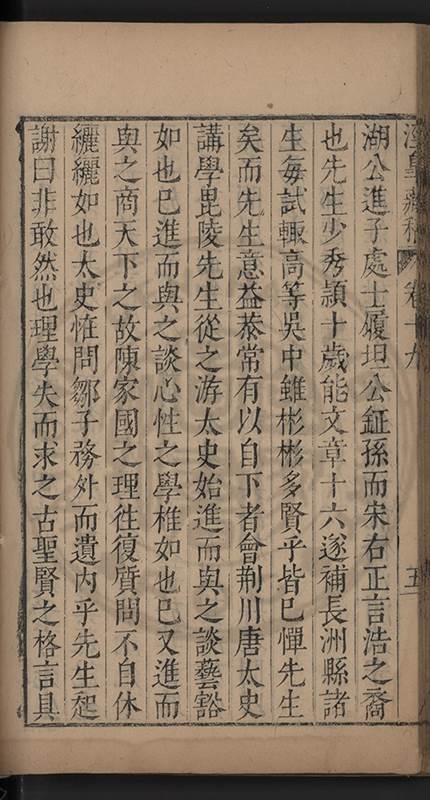 涇臯藏稿 卷十九 五
湖公進子處士履坦公鉦孫而宋右正言浩之裔
也先生少秀頴十歲能文章十六遂補長洲縣諸
生毎試輒高等吳中雖彬彬多賢乎皆已憚先生
矣而先生意益恭常有以自下者會荆川唐太史
講學毘陵先生從之游太史始進而與之談藝豁
如也已進而與之談心性之學椎如也已又進而
與之商天下之故陳家國之理徃復質問不自休
纚纚如也太史恠問鄒子務外而遺内乎先生起
謝曰非敢然也理學失而求之古聖賢之格言具